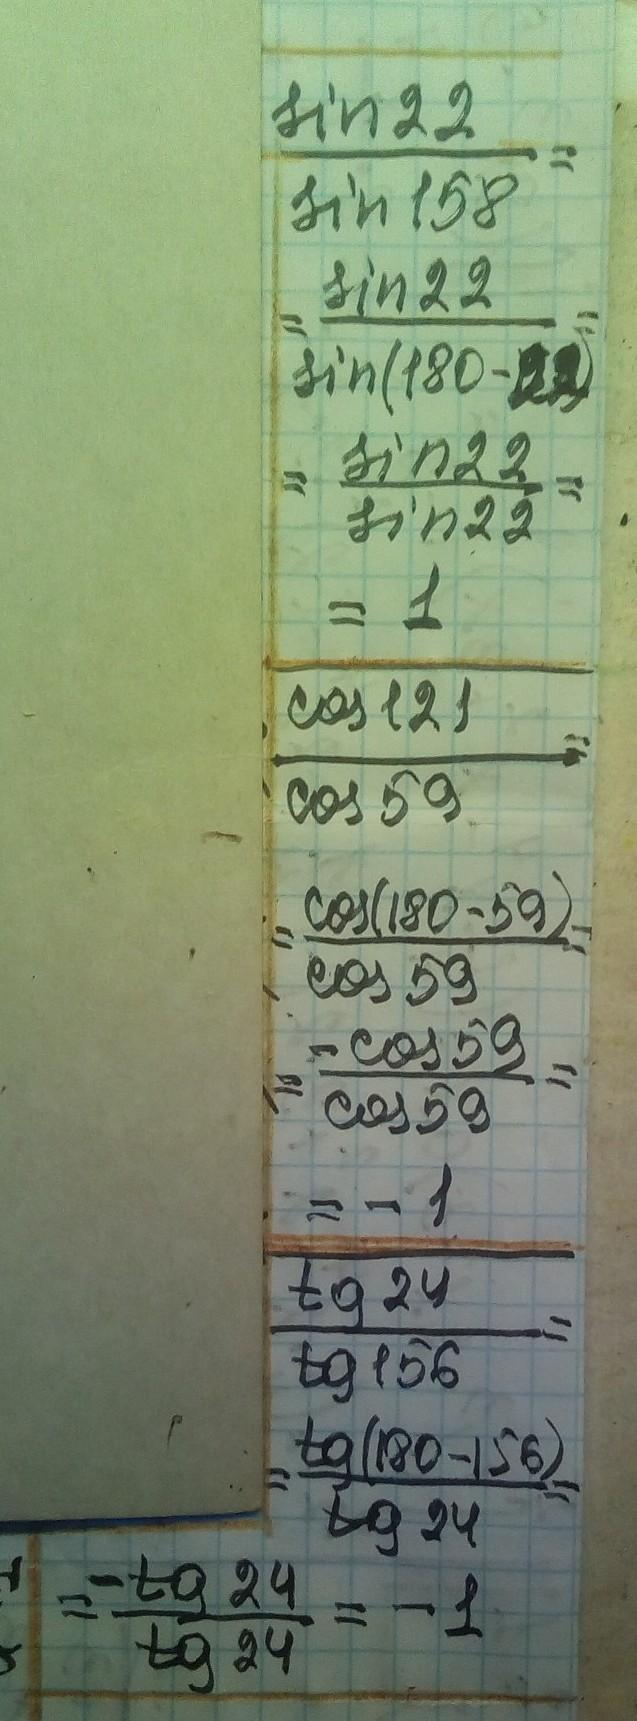 sin22
=
sin158
sin22
= =
sin(180-22)
= sin22 =
sin22
= 1
cos121
=
cos59
cos(180-59)
= =
cos59
= -cos59 =
cos59
= - 1
tg24
=
tg156
= tg(180-156) =
tg24
= -tg24 = - 1
tg24